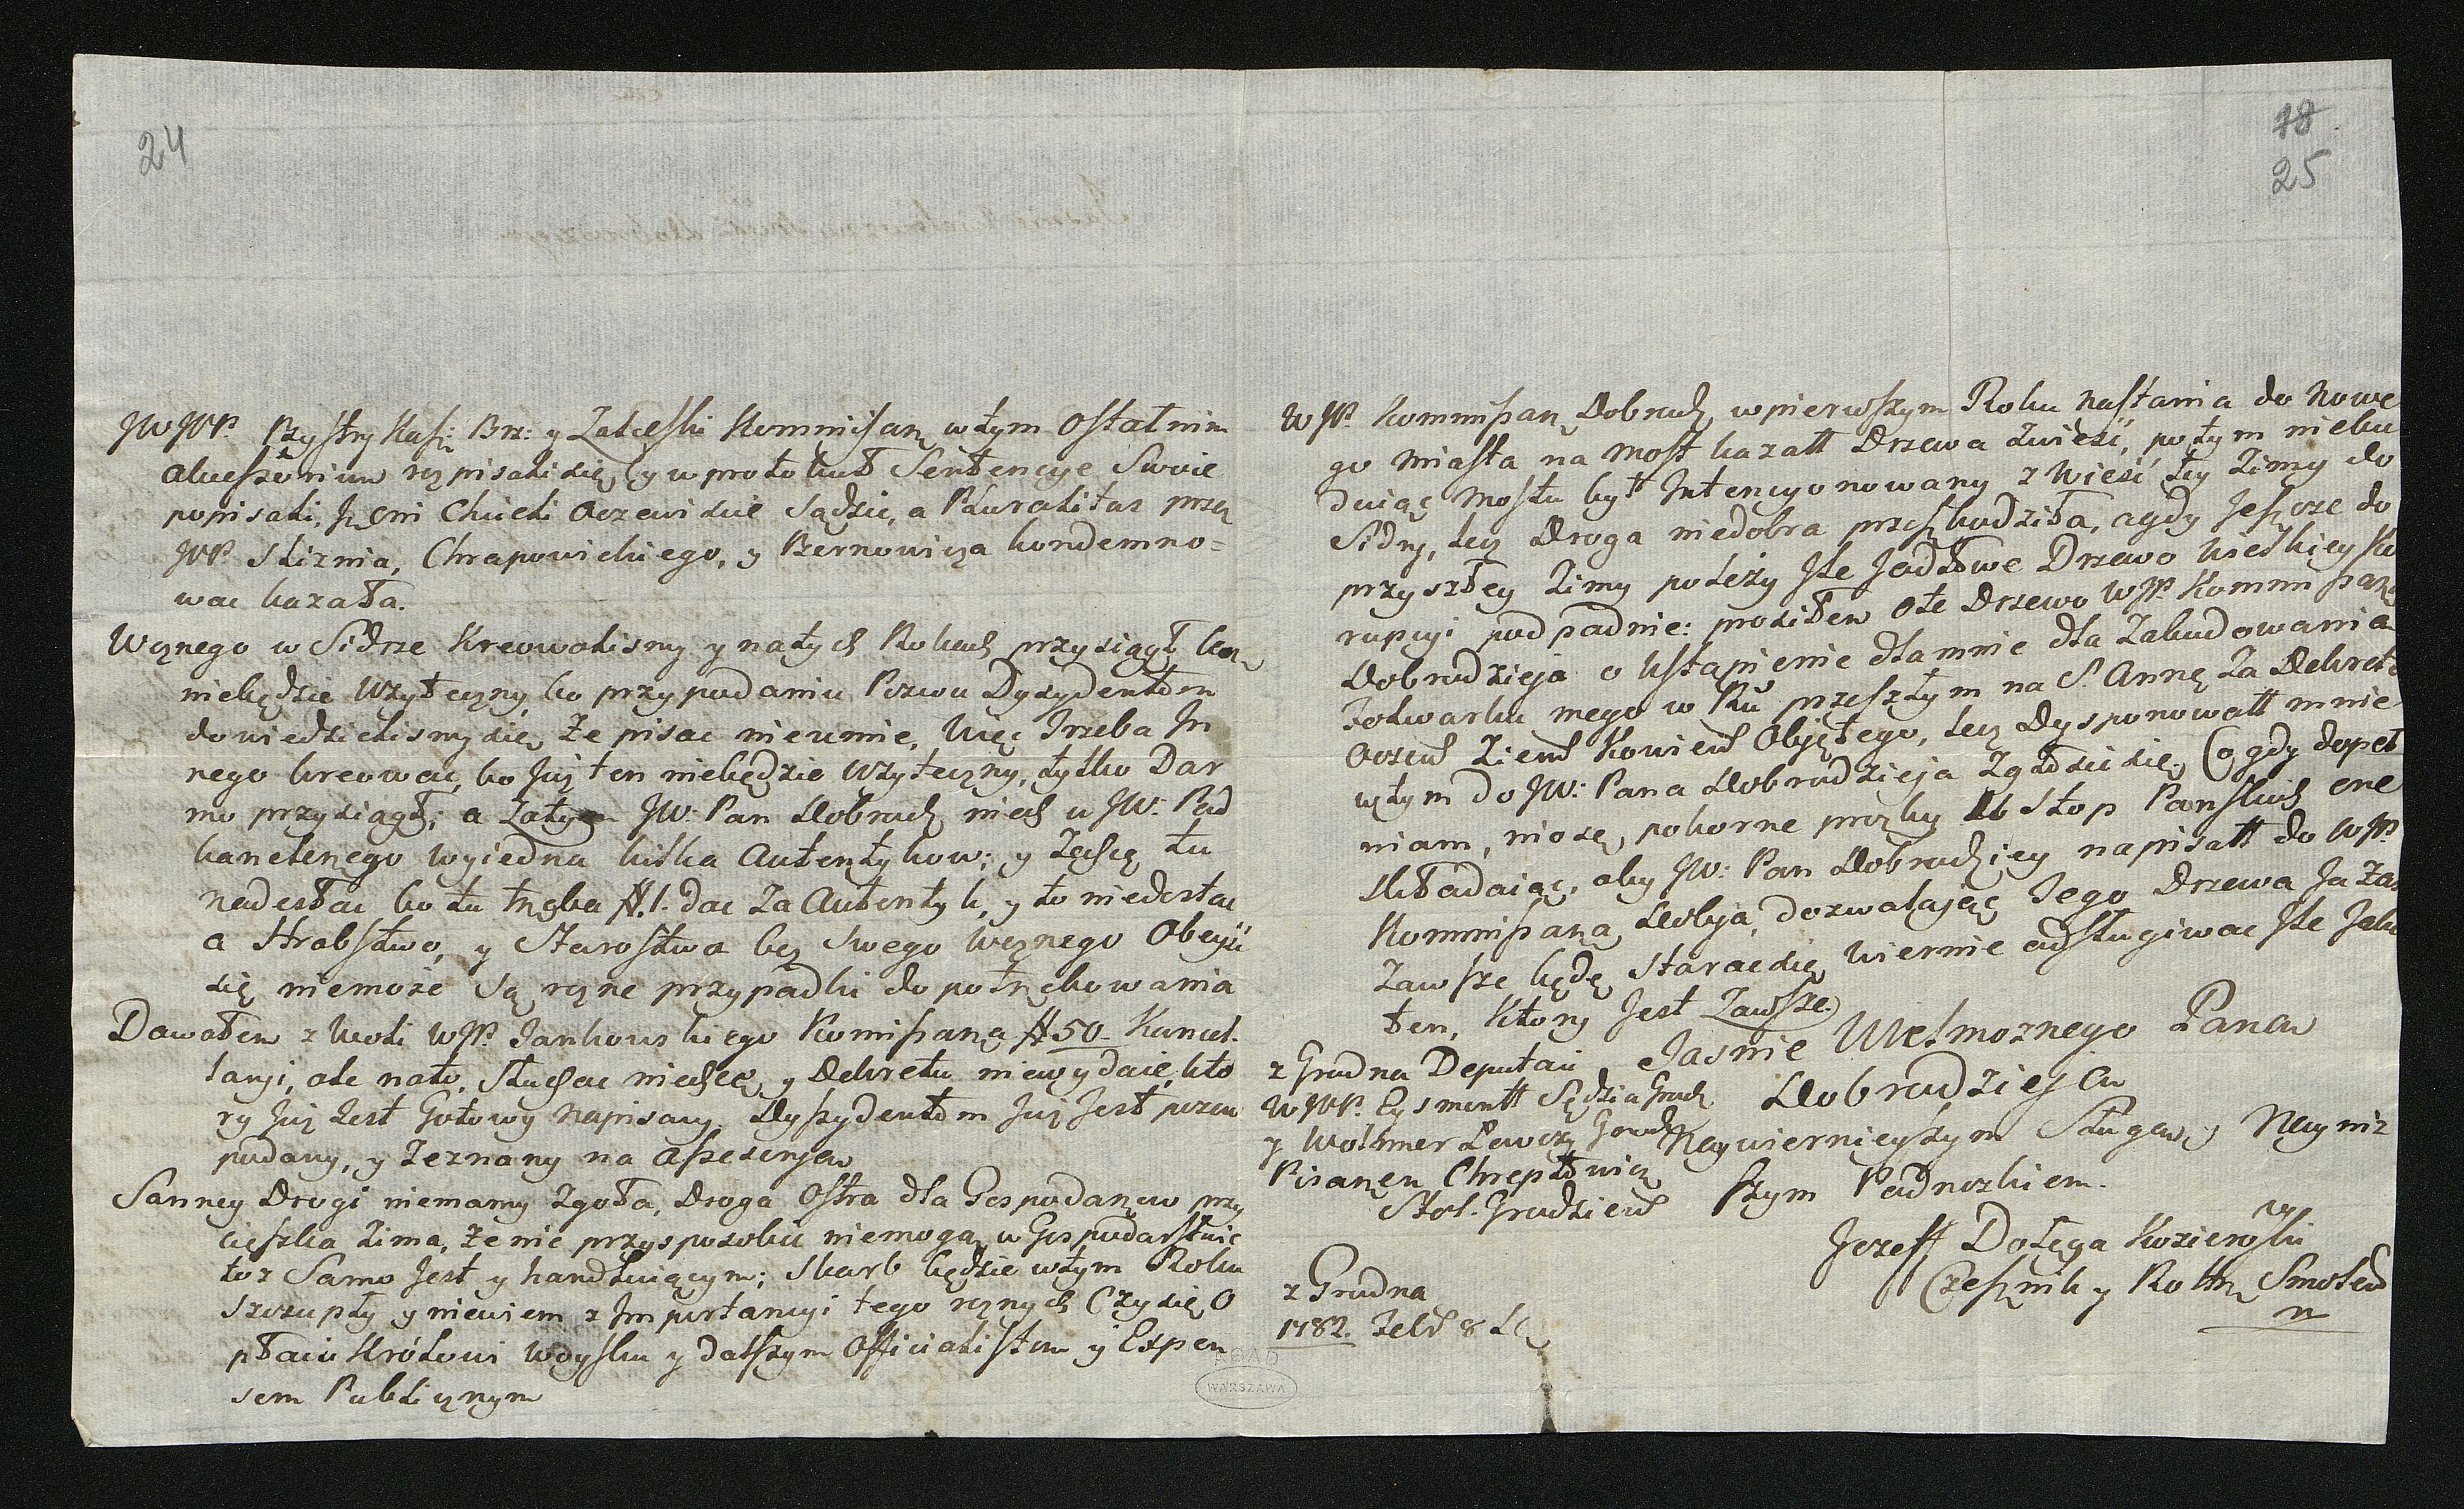 24
JWJP. Bystry Kasz: Brz: y Zaleski Kommissarz w tym Ostatnim
alucssorium rozpisali się, y w protokuł Sentencye Swoie
popisali, Jż Oni Chcieli Oczewiscie Sądzic, a Pluralitas przez
JP. Sliznia, Chrapowickiego, y Bernowicza kondemno=
wac kazała.
Woznego w Sidrze Kreowalismy y na tych Rokach przysiągł lecz
niebędzie Użyteczny, bo przy podaniu Pozwu Dyzydentom
dowiedzielismy się, że pisac nieumie, Więc Trzeba In
nego kreowac, bo Już ten niebędzie Użyteczny, tylko Dar
mo przysiągł; a zatym JW: Pan Dobrodz niech u JW: Pod
kanclerzego wyiedna kilka Autentykow; y zechcę tu
nadesłac bo tu trzeba #. 1. dac za Autentyk, y to niedostac
a Hrabstwo, y Starostwa bez Swego Woznego Obeysc
się niemoże są rozne przypadki do potrzebowania
Dawałem z Woli WJP. Jankowskiego Komissarza # 50. Kancel.
laryi, ale na to, Słuchac niechcą y Dekretu niewydaie, kto
ry Już Jest Gotowy Napisany. Dyssydentom Już Jest pozew
podany, y Zeznany na Assesoryew
Sanney Drogi niemamy zgoła, Droga Ostra dla Gospodarzow przy
cięszka Zima, że nic przysposobic niemogą w Gospodarstwie
toż Samo Jest y handluiącym; Skarb będzie w tym Roku
szczupły y niewiem z Importancyi tego rożnych Czy się O
płaci Królowi Woysku y dalszym Officialistom y Expen
som Publicznym
18
25
WJP. Kommissarz Dobrodz w pierwszym Roku nastania do Nowe
go Miasta na Most kazałł Drzewa zwieść, potym niebu
duiąc Mostu był Intencyonowany zwieść tey Zimy do
Sidry, lecz Droga niedobra przeszkodziła, a gdy Jeszcze do
przyszłey Zimy poleży Jle Jodłowe Drzewo wielkiey Ko
rupcyi podpadnie: prosiłem Ote Drzewo WJP. Kommissarza
Dobrodzieja o Ustąpienie dla mnie dla Zabudowania
Folwarku mego w Ru przeszłym na S. Annę za Dekretem
Oczew Ziem Kowień Objętego, lecz Dysponowałł mnie
w tym do JW: Pana Dobrodzieja zgłosic się. Co gdy dopeł
niam, niosę pokorne prozby U Stop Pańskich one
składając, aby JW: Pan Dobrodziey napisałł do WJP.
Kommissarza Dobja, dozwalając Tego Drzewa Ja zas
Zawsze będę Starac się Wiernie odsługiwac Jle Jako
ten, Ktory Jest Zawsze.
Jasnie Wielmoznego Pana
Dobrodzieja
z Grodna Deputaci
WJP. Eysmontt Sędzia Grodz
y Wolmer Łowczy Grodz
Pisarzem Chreptowicz
Stol. Grodzień
Naywiernieyszym Sługą y Nayniż
szym Podnozkiem.
Jozeff Dołęga Kozierowski
Czesznik y Rottm Smoleń
z Grodna
1782. Febr 8 D
AGAD
WARSZAWA